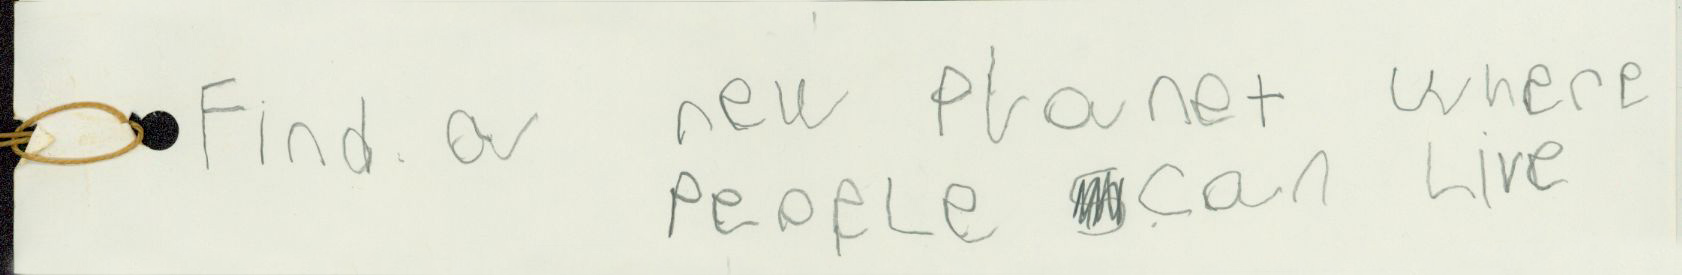 Find a new planet where
people can Live